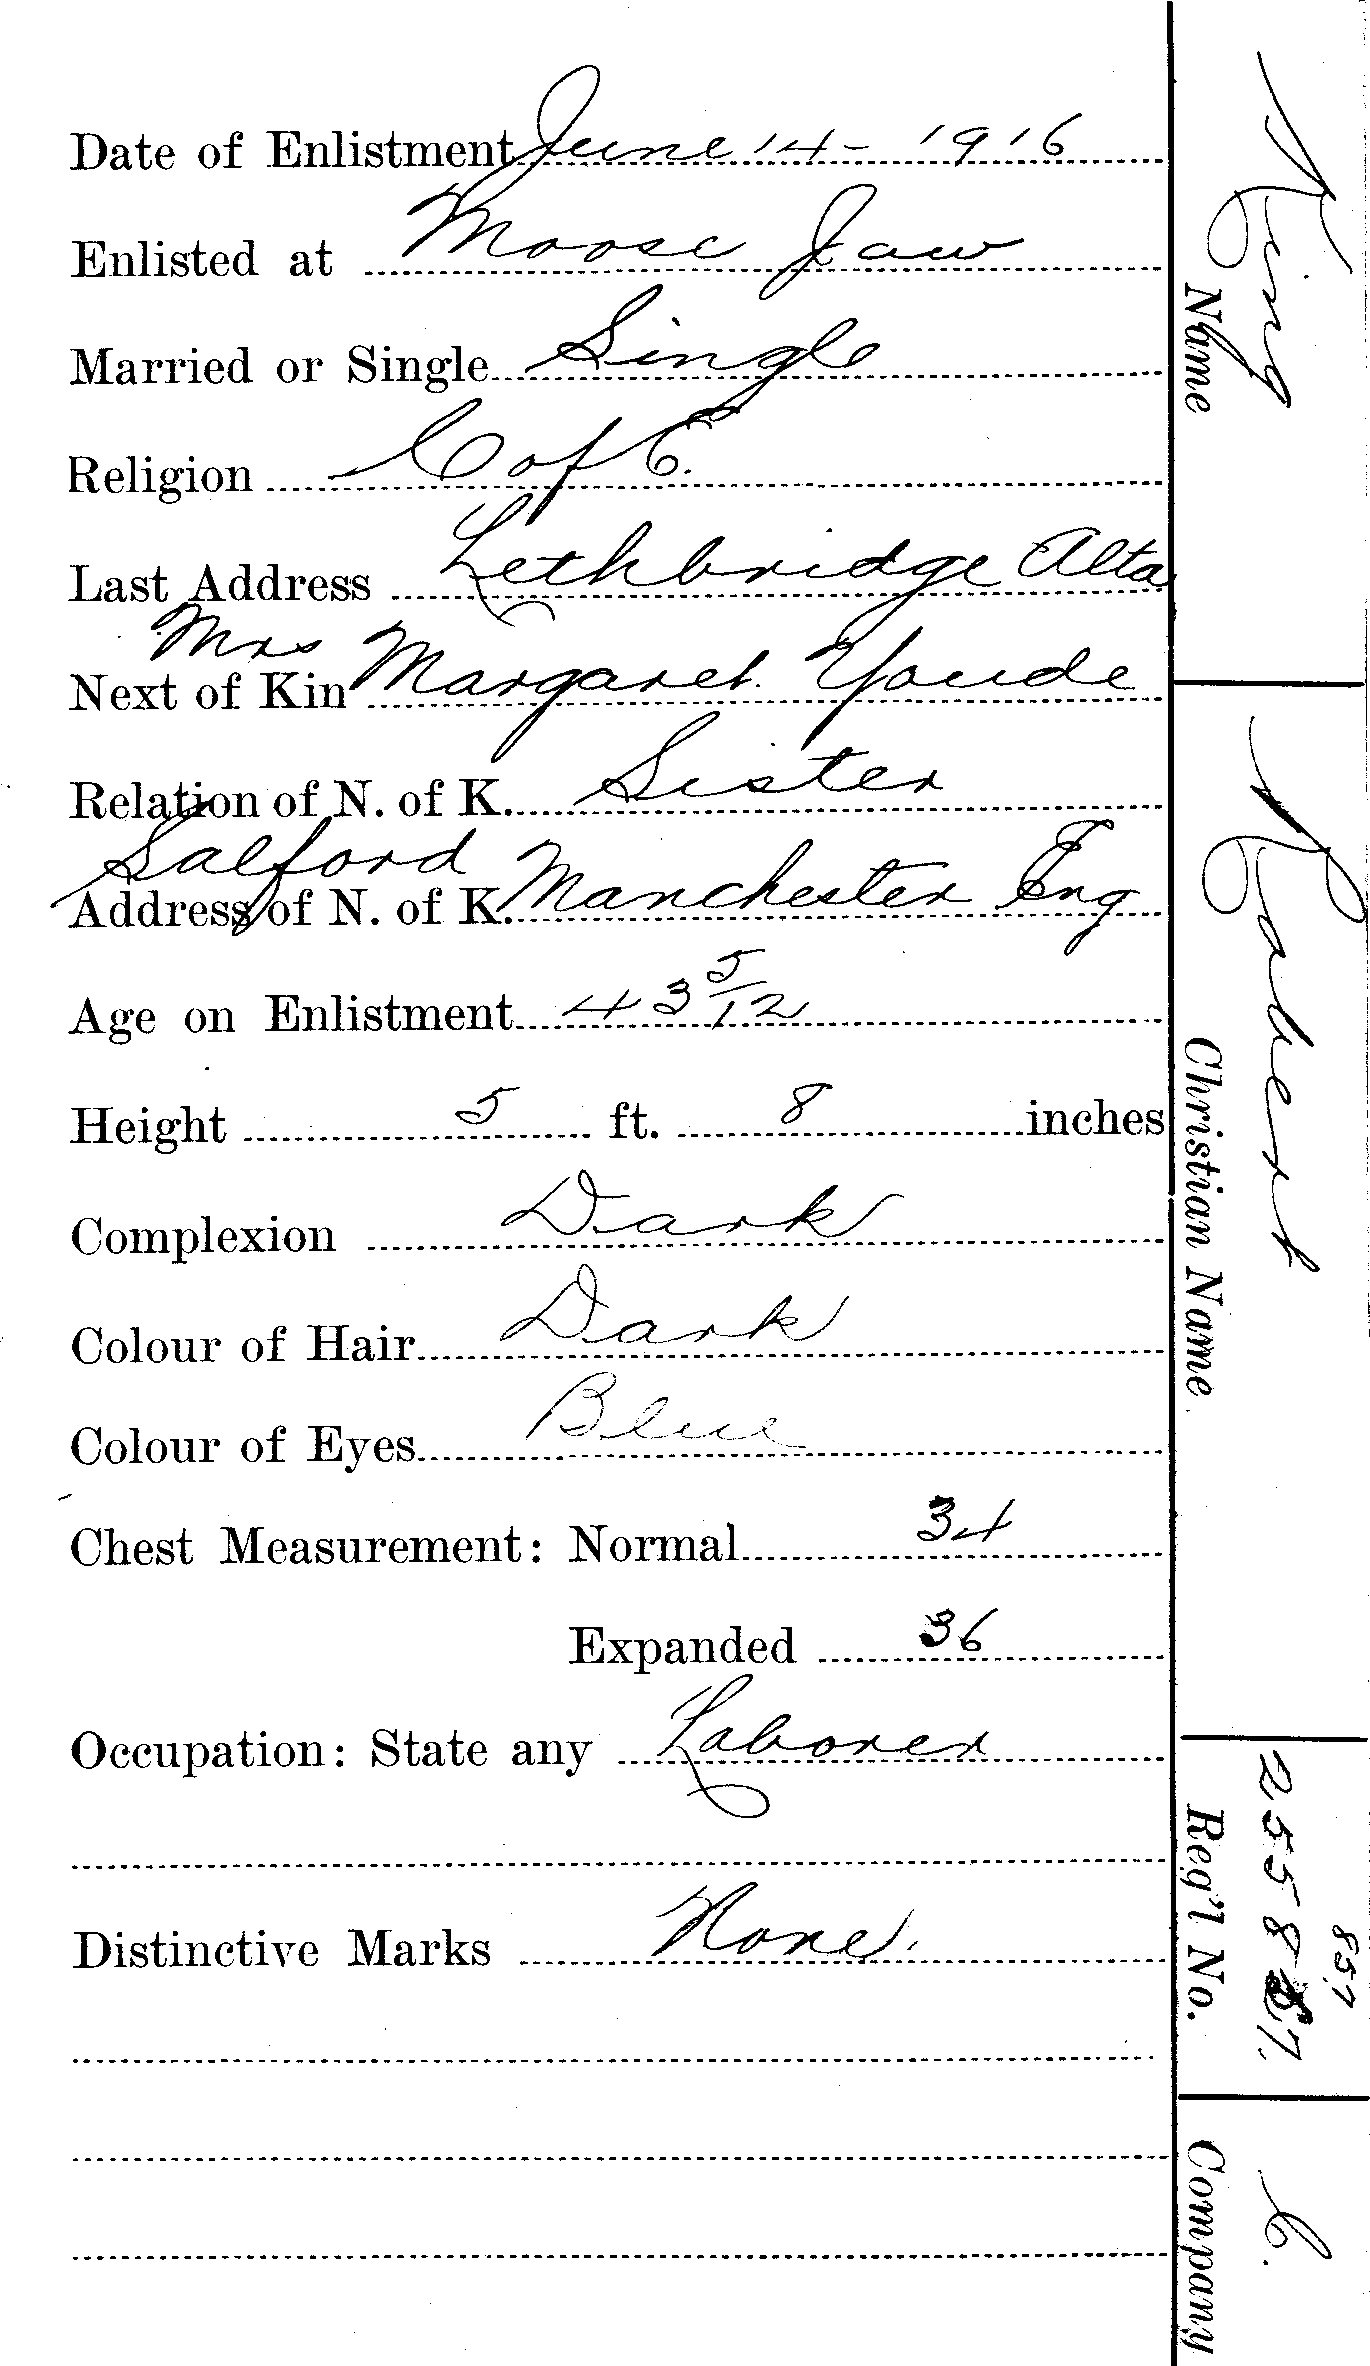 Date of Enlistment June 14 - 1916
Enlisted at Moose Jaw
Married or Single Single
Religion C of E.
Last Address Lethbridge Alta
Mrs
Next of Kin Margaret Youde
Relation of N. of K. Sister
Salford
Address of N. of K. Manchester Eng
Age on Enlistment 43 5/12
Height 5 ft. 8 inches
Complexion Dark
Colour of Hair Dark
Colour of Eyes Blue
Chest Measurement: Normal 34
Expanded 36
Occupation: State any Laborer
Distinctive Marks None.
King
Name
Robert
Christian Name
857
Reg'l No.
C.
Company